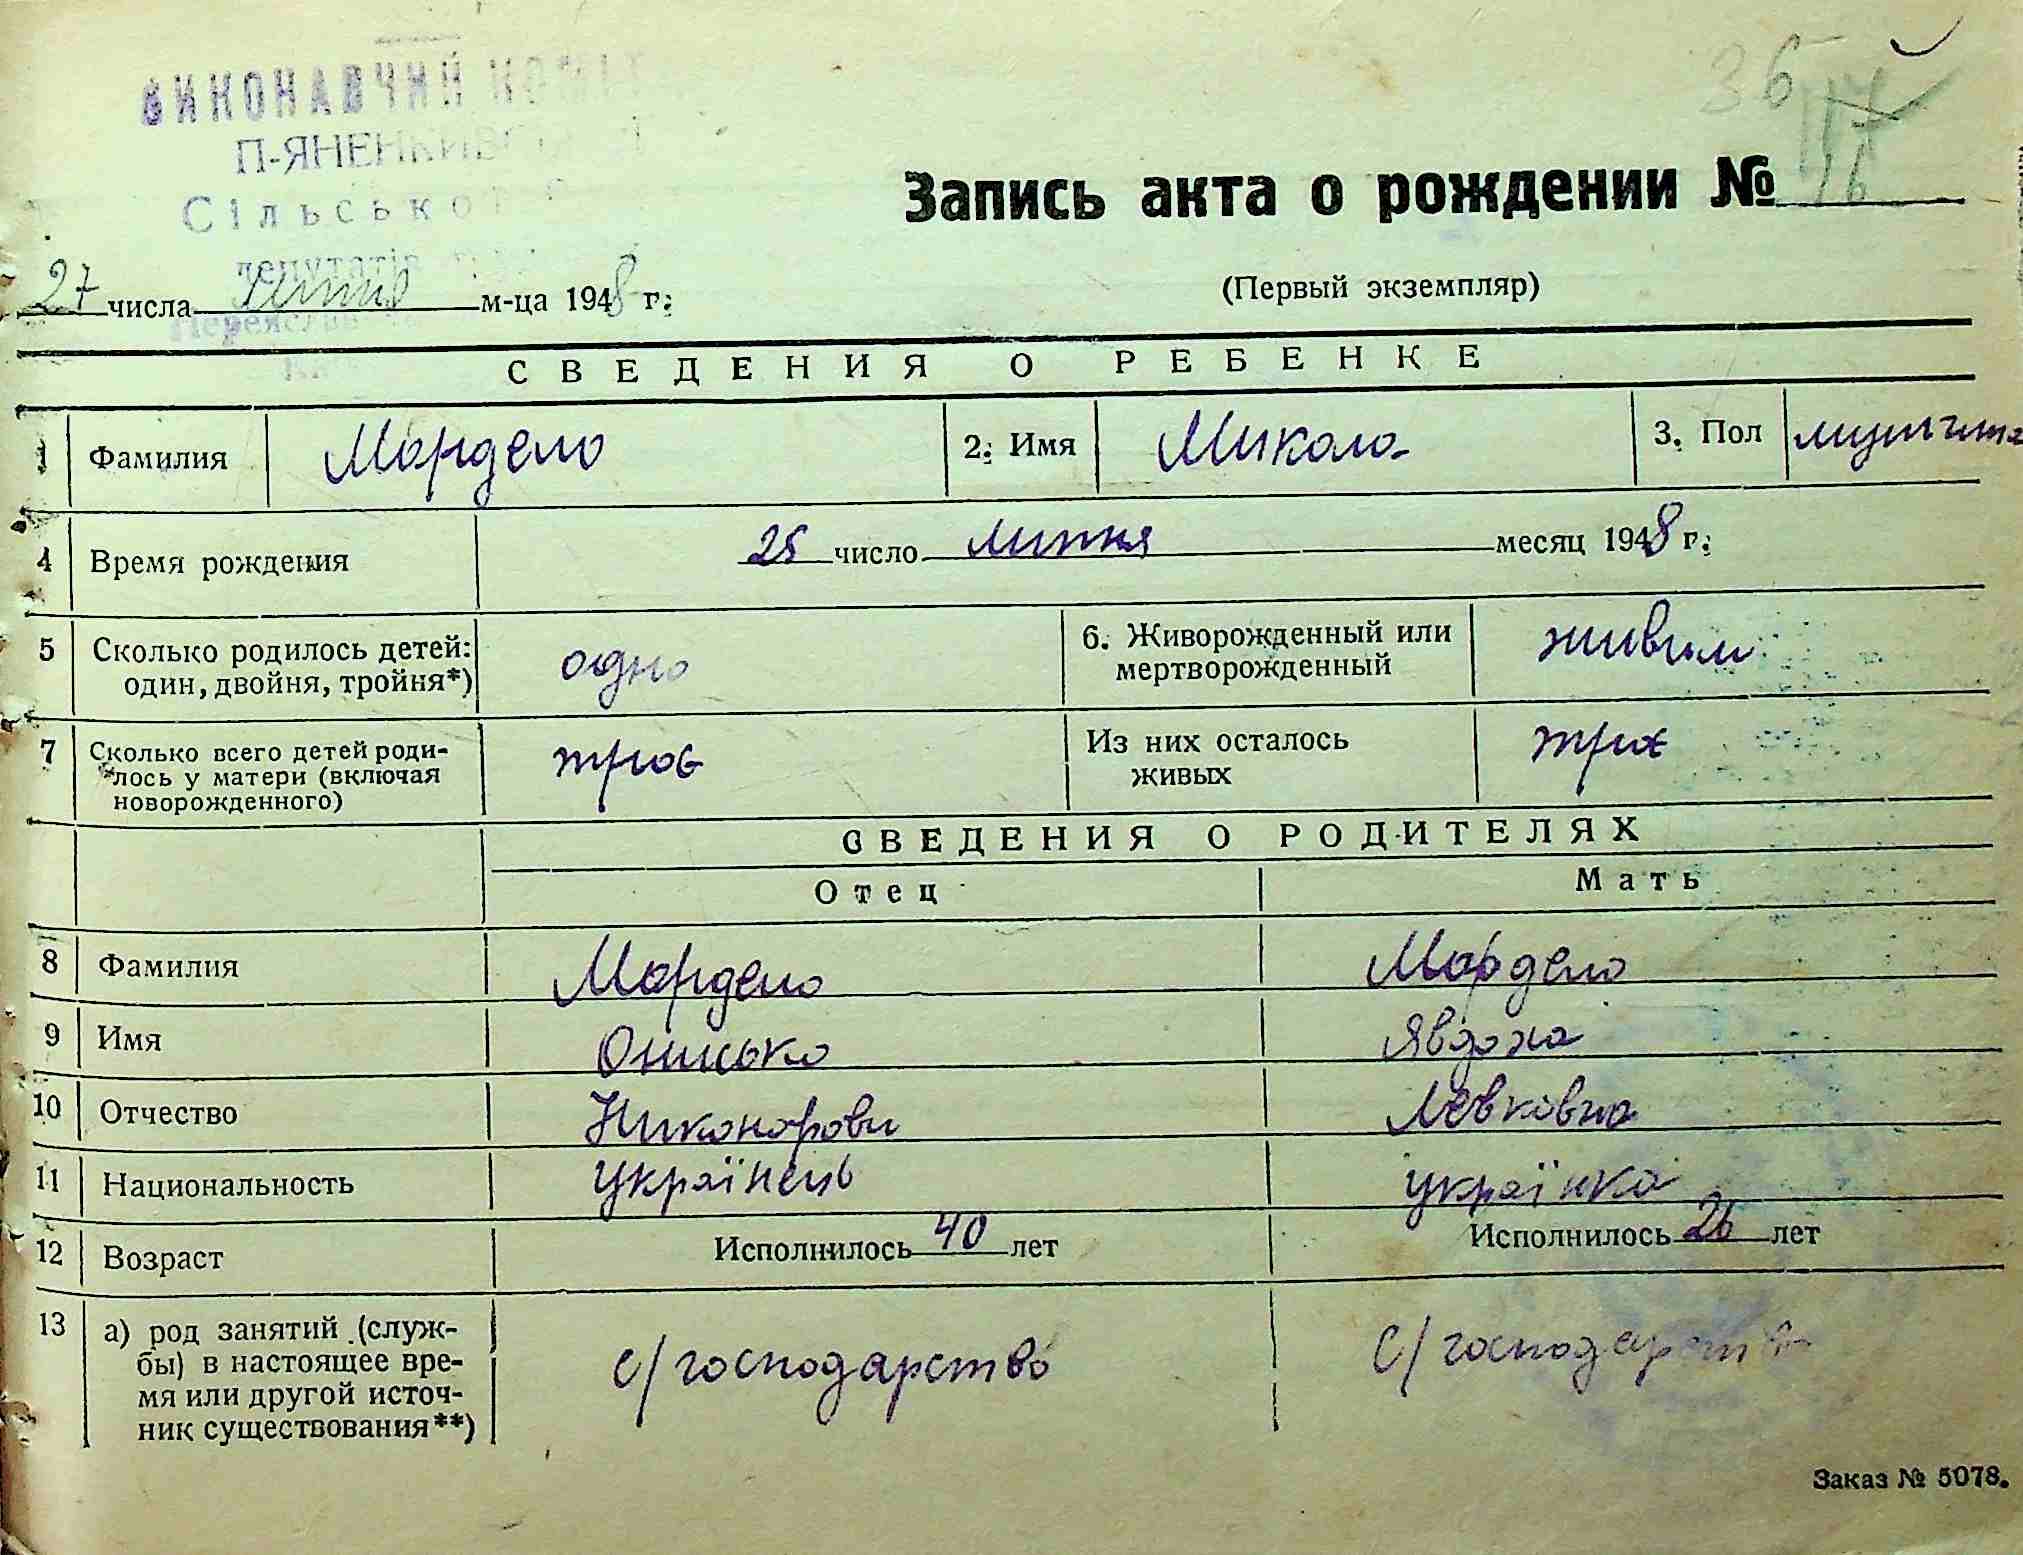 ВИКОНАВЧИЙ КОМІТ
П-ЯНЕНКИВС
Сільсько
депутатів
36
Запись акта о рождении № 16
27 числа липня м-ца 1948 г.
(Первый экземпляр)
СВЕДЕНИЯ О РЕБЕНКЕ
1 Фамилия Мордело 2. Имя Микола 3. Пол
4 Время рождения 25 число липня месяц 1948 г.
5 Сколько родилось детей: один, двойня, тройня*) одно 6. Живорожденный или мертворожденный живим
7 Сколько всего детей родилось у матери (включая новорожденного) троє Из них осталось живых троє
СВЕДЕНИЯ О РОДИТЕЛЯХ
Отец Мать
8 Фамилия Мордело Мордело
9 Имя Онисько Явдоха
10 Отчество Никонорови Левковна
11 Национальность українець українка
12 Возраст Исполнилось 40 лет Исполнилось 26 лет
13 а) род занятий (службы) в настоящее время или другой источник существования**) с/господарство с/господарство
Заказ № 5078.